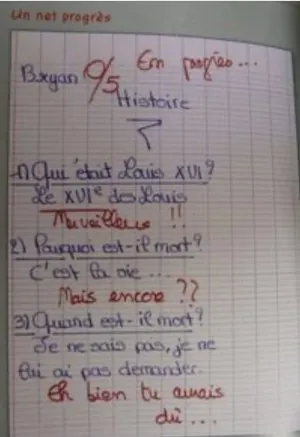 Un net progrès
Bryan 0/5 En progrès...
Histoire
1) Qui était Louis XVI?
Le XVIe des Louis
Merveilleux !!
2) Pourquoi est-il mort?
C'est la vie...
Mais encore ??
3) Quand est-il mort?
Je ne sais pas, je ne
lui ai pas demander.
Eh bien tu aurais
dû...